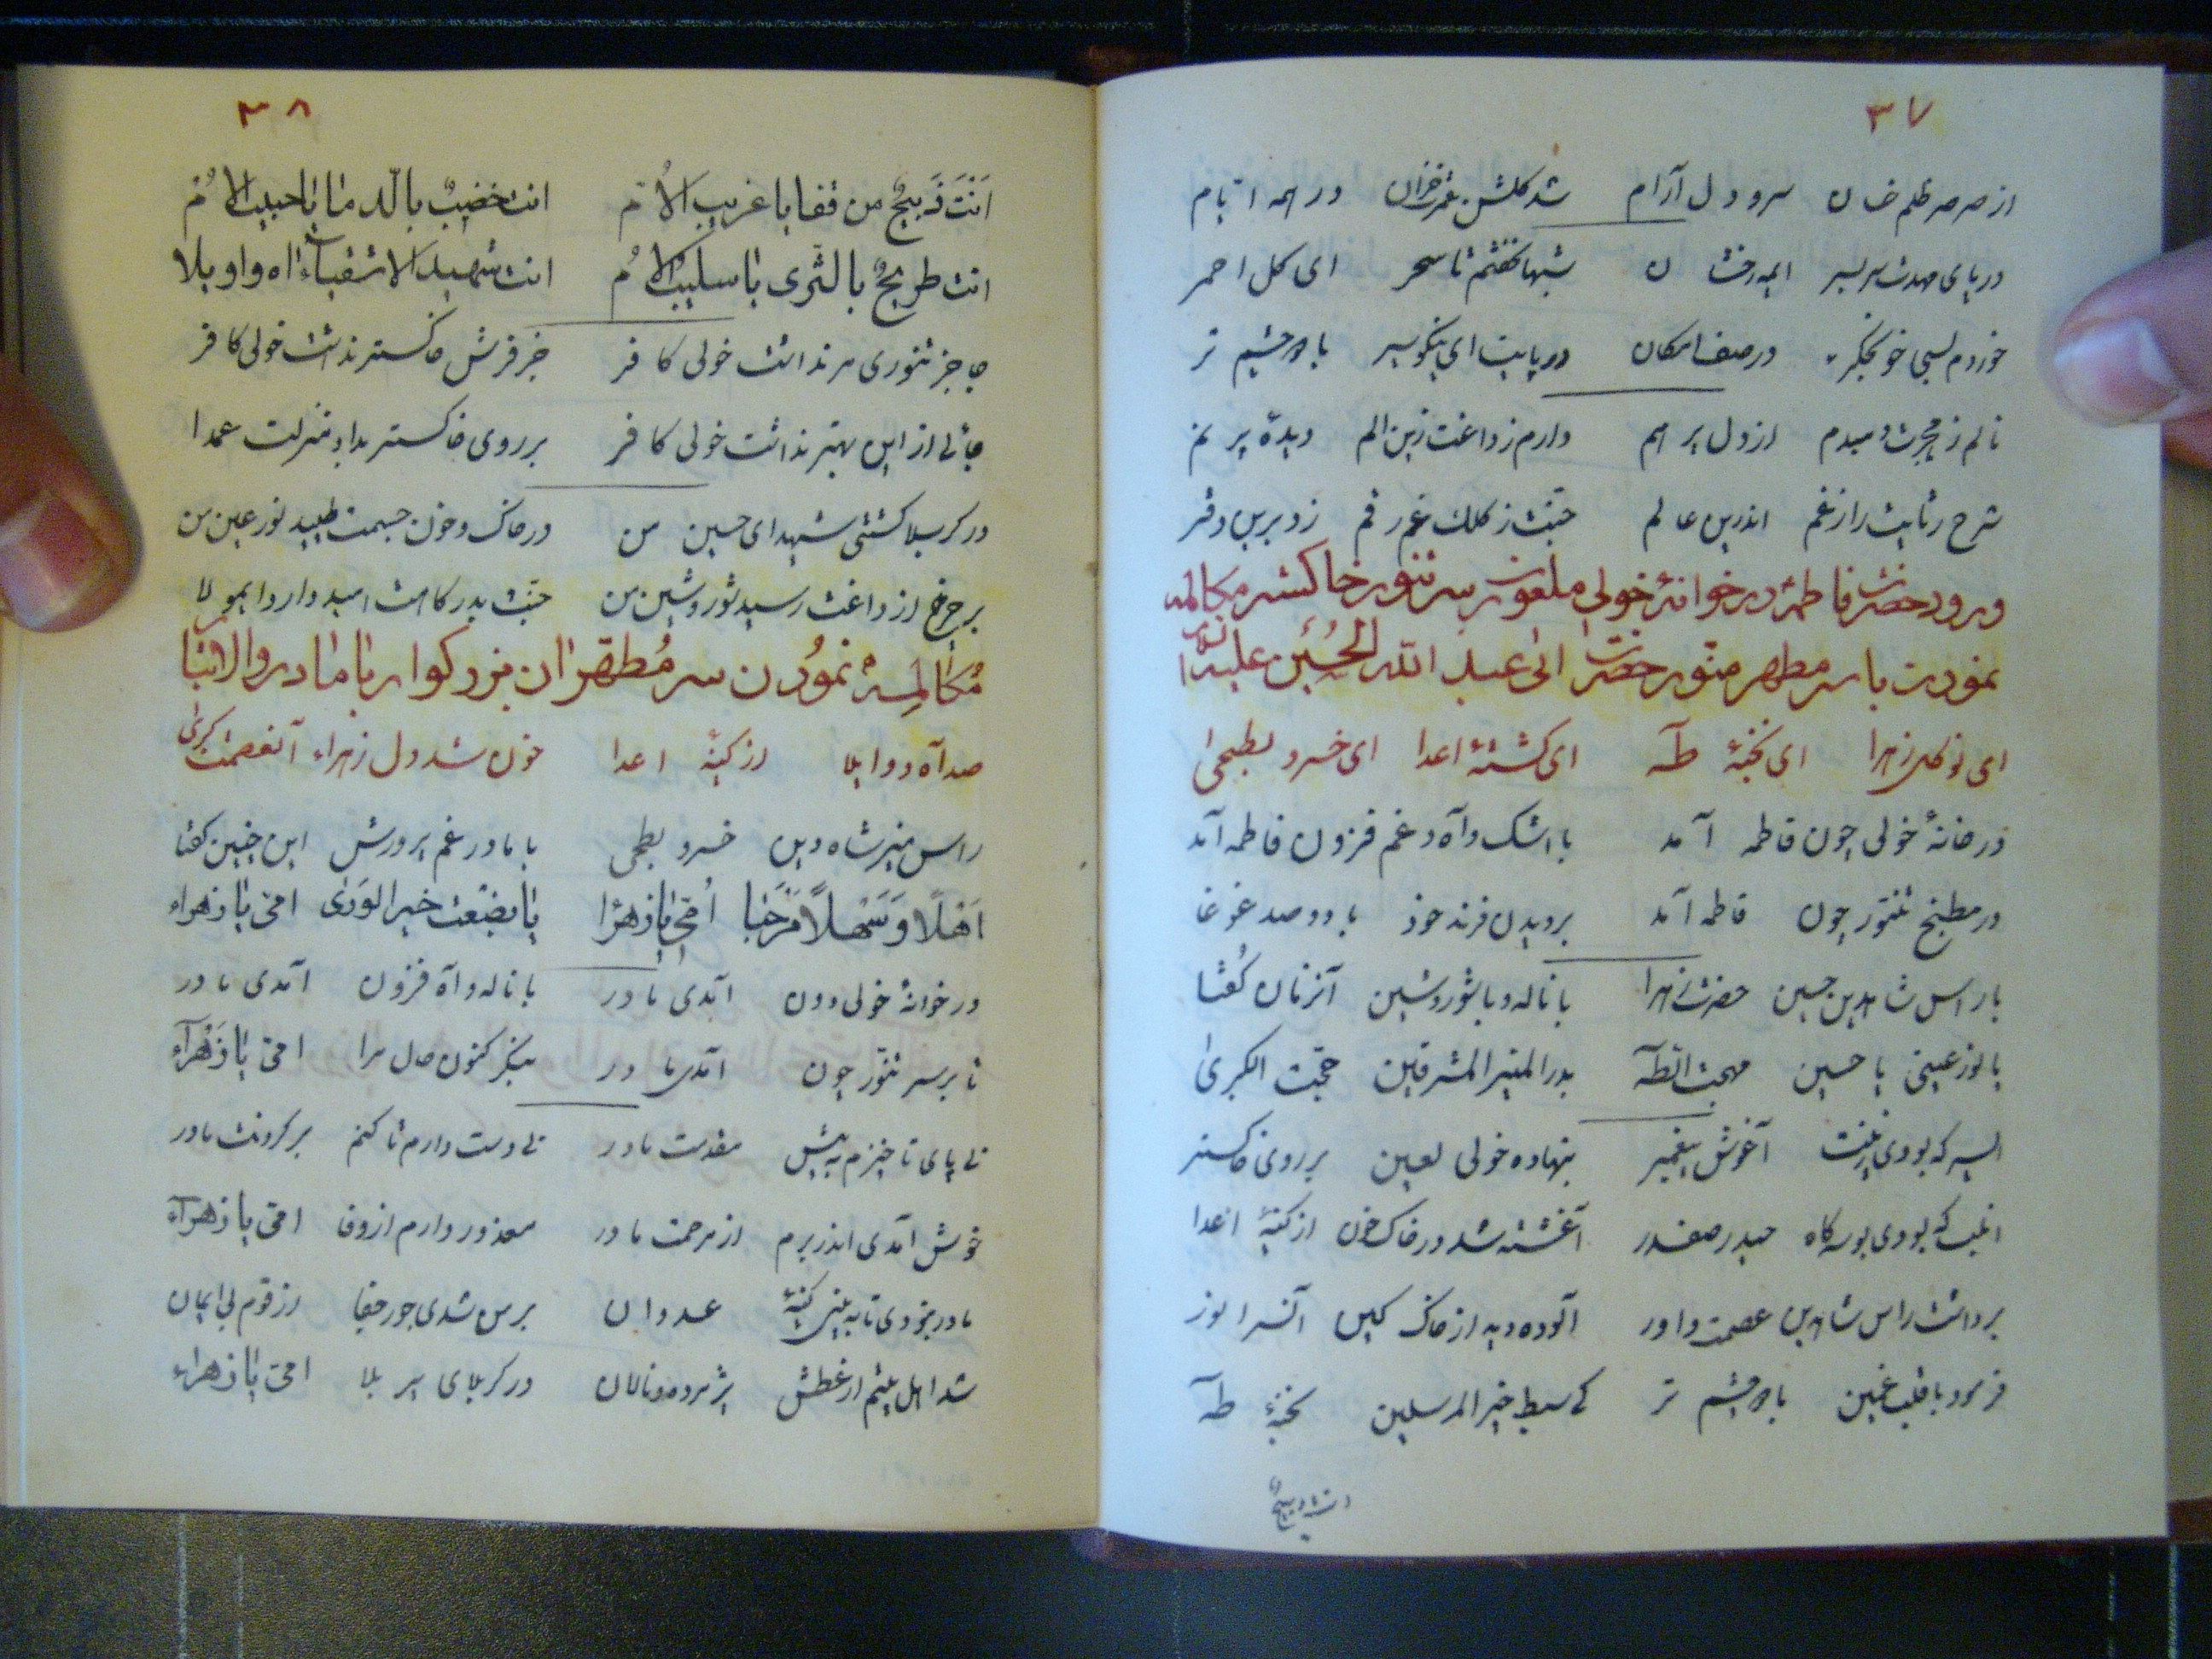 ۳۷
از صرصر ظلم خسان سرو دل آرام شد گلشن عمرت خزان در همه ایام
در پای مهدت سر بسر ایمه رخشان شبها نخفتم تا سحر ای گل احمر
خوردم بسی خونجگر در صف امکان در پایت ای نیکو سیر با دو چشم تر
نالم ز هجرت دمبدم از دل پر هم دارم ز داغت زین الم دیدهٔ پر نم
شرح رثایت را ز غم اندرین عالم جنّت ز کلک غم رقم زد برین دفتر
ورود حضرت فاطمه در خوانهٔ خولی ملعون بر سر تنور خاکستر مکالمه
نمودن با سر مطهر منوّر حضرت ابی عبد الله الحُسَین علیه السلام
ای نو گل زهرا ای نخبهٔ طه ای کشتهٔ اعدا ای خسرو بطحی
در خانهٔ خولی چون فاطمه آمد با اشک و آه و غم فزون فاطمه آمد
در مطبخ تنّور چون فاطمه آمد بر دیدن فرزند خود با دو صد غوغا
با راس شاهدین حسین حضرت زهرا با ناله و با شور و شین آنزمان گفتا
یا نور عینی یا حسین مهجت الطه بدر المنیر المشرقین حجّت الکبریٰ
ایسر که بودی زینت آغوش پیغمبر بنهاده خولی لعین بر روی خاکستر
انلب که بودی بوسه گاه حیدر صفدر آغشته شد در خاک خون از کینهٔ اعدا
برداشت راس شاهدین عصمت داور آلوده دید از خاک کین آنسر انور
فرمود با قلب غمین با دو چشم تر کی سبط خیر المرسلین نخبهٔ طه
انت ذبیحٌ
۳۸
اَنْتَ ذَبیحٌ من قفا یا غریب الاُمَم انت خضیبٌ بالدّما یا حبیب الاُمَم
انت طریحٌ بالثّری یا سلیب الاُمَم انت شهید الاشقیآء اه واویلا
جا جز تنوری سر نداشت خولی کافر جز فرش خاکستر نداشت خولی کافر
جائی از این بهتر نداشت خولی کافر بر روی خاکستر بداد منزلت عمدا
در کربلا کشتی شهید ای حسین من در خاک و خون جسمت طپید نور عین من
بر چرخ از داغت رسید شور و شین من جنّت بدرگاهت امید دارد ایمولا
مُکالِمهٔ نمُودن سر مُطهّر ان بزرکوار با مادر والاتبا
صد آه و واویلا از کینهٔ اعدا خون شد دل زهراء آنعصمت کبری
راس منیر شاه دین خسرو بطحی با مادر غم پرورش این چنین گفتا
اَهْلًا وَ سَهْلاً مَرْحَبا اُمّی یا زهرٰا یا بضعَت خیر الوَریٰ امّی یا زهراء
در خوانهٔ خولی دون آمدی مادر با ناله و آه فزون آمدی مادر
تا بر سر تنّور چون آمدی مادر بنگر کنون حال مرا امّی یا زَهْرآء
نی پای تا خیزم به پیش مقدمت مادر نی دست دارم تا کنم بر گردنت مادر
خوش آمدی اندر برم از مرحمت مادر معذور دارم از وفا امّی یا زهرآء
مادر نبودی تا به بینی کینهٔ عدوان بر من شدی جور جفا از قوم بی ایمان
شد اهل بیتم از عطش پژمرده و نالان در کربلای پر بلا امّی یا زهراء